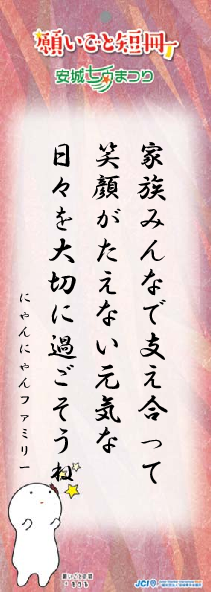 願いごと短冊
安城七夕まつり
家族みんなで支え合って
笑顔がたえない元気な
日々を大切に過ごそうね
にゃんにゃんファミリー
願いごと短冊
JCI